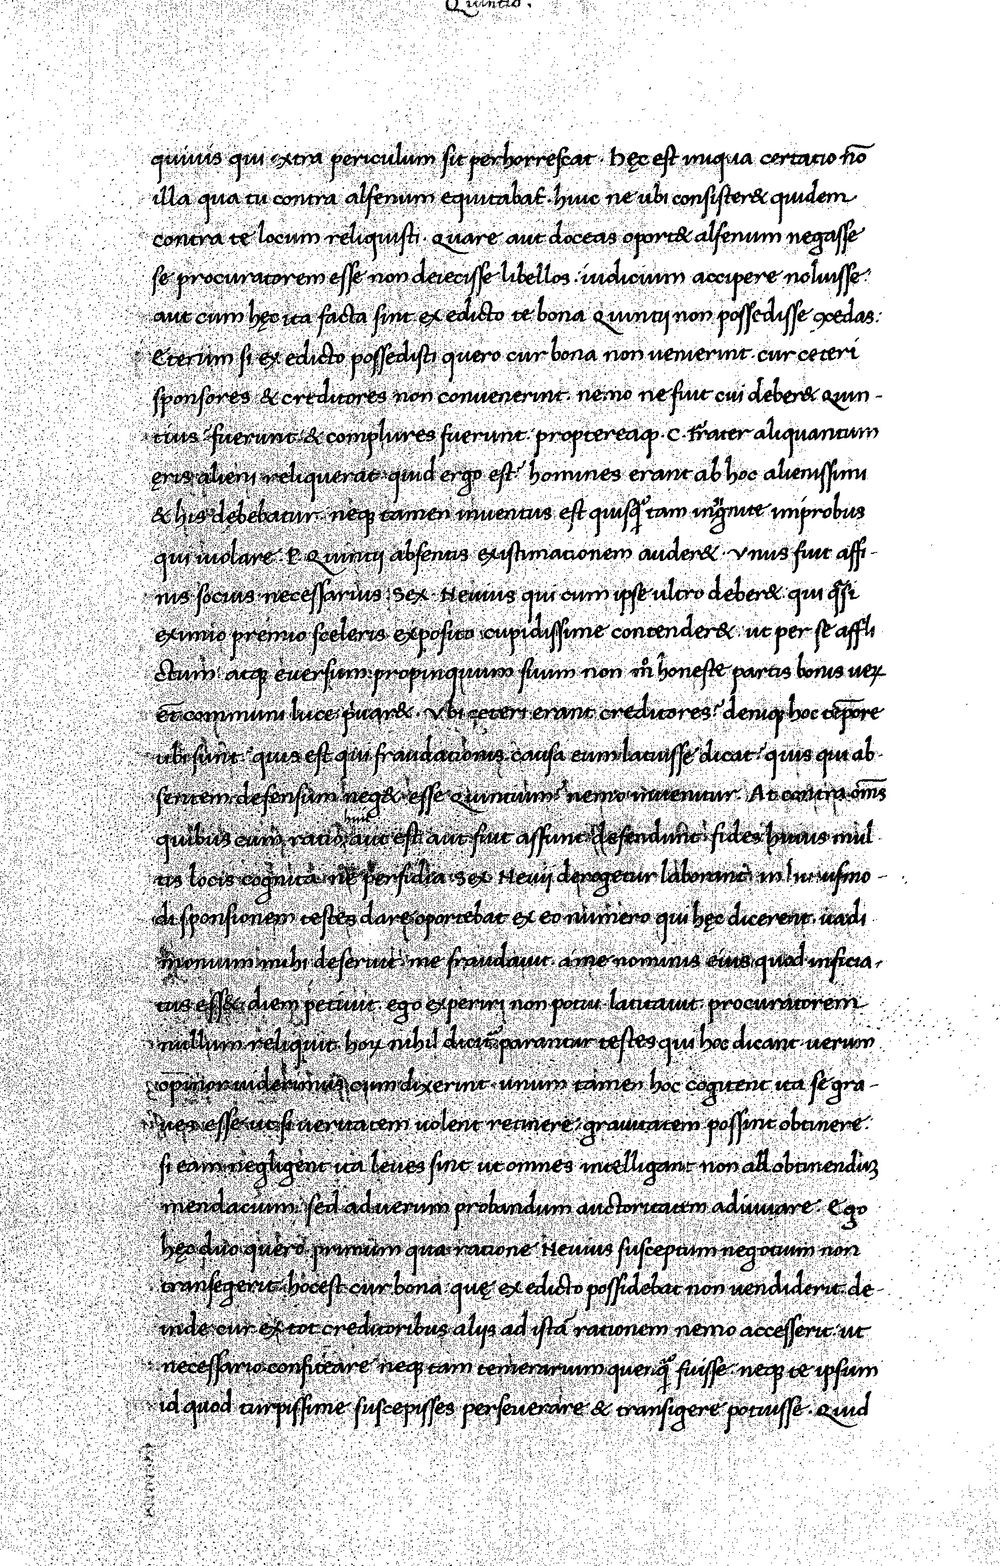 Quintio.
quiuis qui extra periculum sit perhorrescat. hęc est iniqua certatio nō
illa qua tu contra alfenum equitabas. huic ne ubi consister& quidem
contra te locum reliquisti. Quare aut doceas oport& alfenum negasse
se procuratorem esse non deiecisse libellos. iudicium accipere noluisse.
aut cum hęc ita facta sint ex edicto te bona Quintij non possedisse ꝯcedas.
Eterim si ex edicto possedisti quero cur bona non uenierint. cur ceteri
sponsores & creditores non conuenerint. nemo ne fuit cui deber& Quin-
tius fuerunt & complures fuerunt. propterea q̨ C. frater aliquantum
ęris alieni reliquerat. quid ergo est? homines erant ab hoc alienissimi
& his debebatur. neq̨ tamen inuentus est quisq̄ tam insignite improbus
qui uiolare P. Quintij absentis existimationem auder&. Vnus fuit affi-
nis socius necessarius Sex. Neuius qui cum ipse ultro deber& qui q̄si
eximio premio sceleris exposito cupidissime contender& ut per se affli
ctum atq̨ euersum propinquum suum non m̊ honeste partis bonis uerꝝ
et̄ communi luce priuar&. Vbi ceteri erant creditores? deniq̨ hoc tēpore
ubi sunt? quis est qui fraudationis causa eum latuisse dicat? quis qui ab-
sentem defensum neg& esse Quintium? nemo inuenitur. At contra oms̄
quibus cum ratio huic aut est aut fuit assunt defendunt. fides huius mul
tis locis cognita ne perfidia Sex. Neuij derogetur laborant. in huiusmo-
di sponsionem testes dare oportebat ex eo numero qui hęc dicerent. uadi
monium mihi deseruit. me fraudauit. a me nominis eius quod inficia-
tus ess& diem petiuit. ego experiri non potui. latitauit. procuratorem
nullum reliquit. horꝝ nihil dicit̄. parantur testes qui hoc dicant. uerum
opinor uiderimus cum dixerint. unum tamen hoc cogitent ita se gra-
ues esse ut si ueritatem uolent retinere, grauitatem possint obtinere.
si eam negligent ita leues sint ut omnes intelligant non ad obtinenduꝫ
mendacium. sed ad uerum probandum auctoritatem adiuuare. Ego
hęc duo quero. primum qua ratione Neuius susceptum negotium non
transegerit. hoc est cur bona quę ex edicto possidebat non uendiderit. de-
inde cur ex tot creditoribus alijs ad istā rationem nemo accesserit. ut
necessario confiteare neq̨ tam temerarium quenq̄ fuisse. neq̨ te ipsum
id quod turpissime suscepisses perseuerare & transigere potuisse. Quid